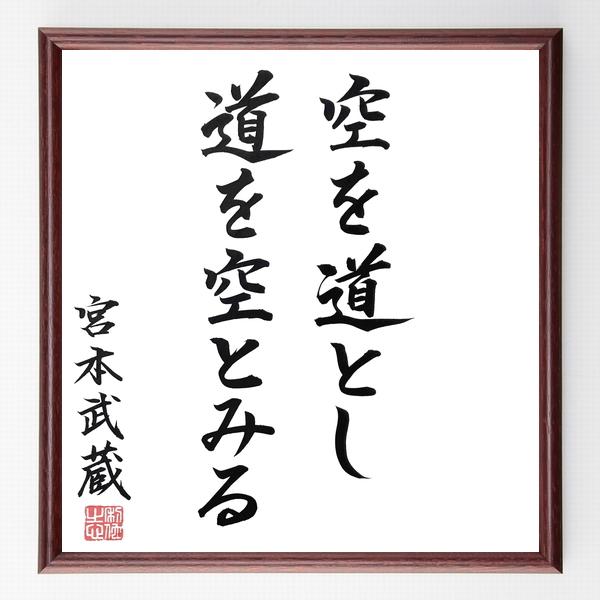 空を道とし
道を空とみる
宮本武蔵